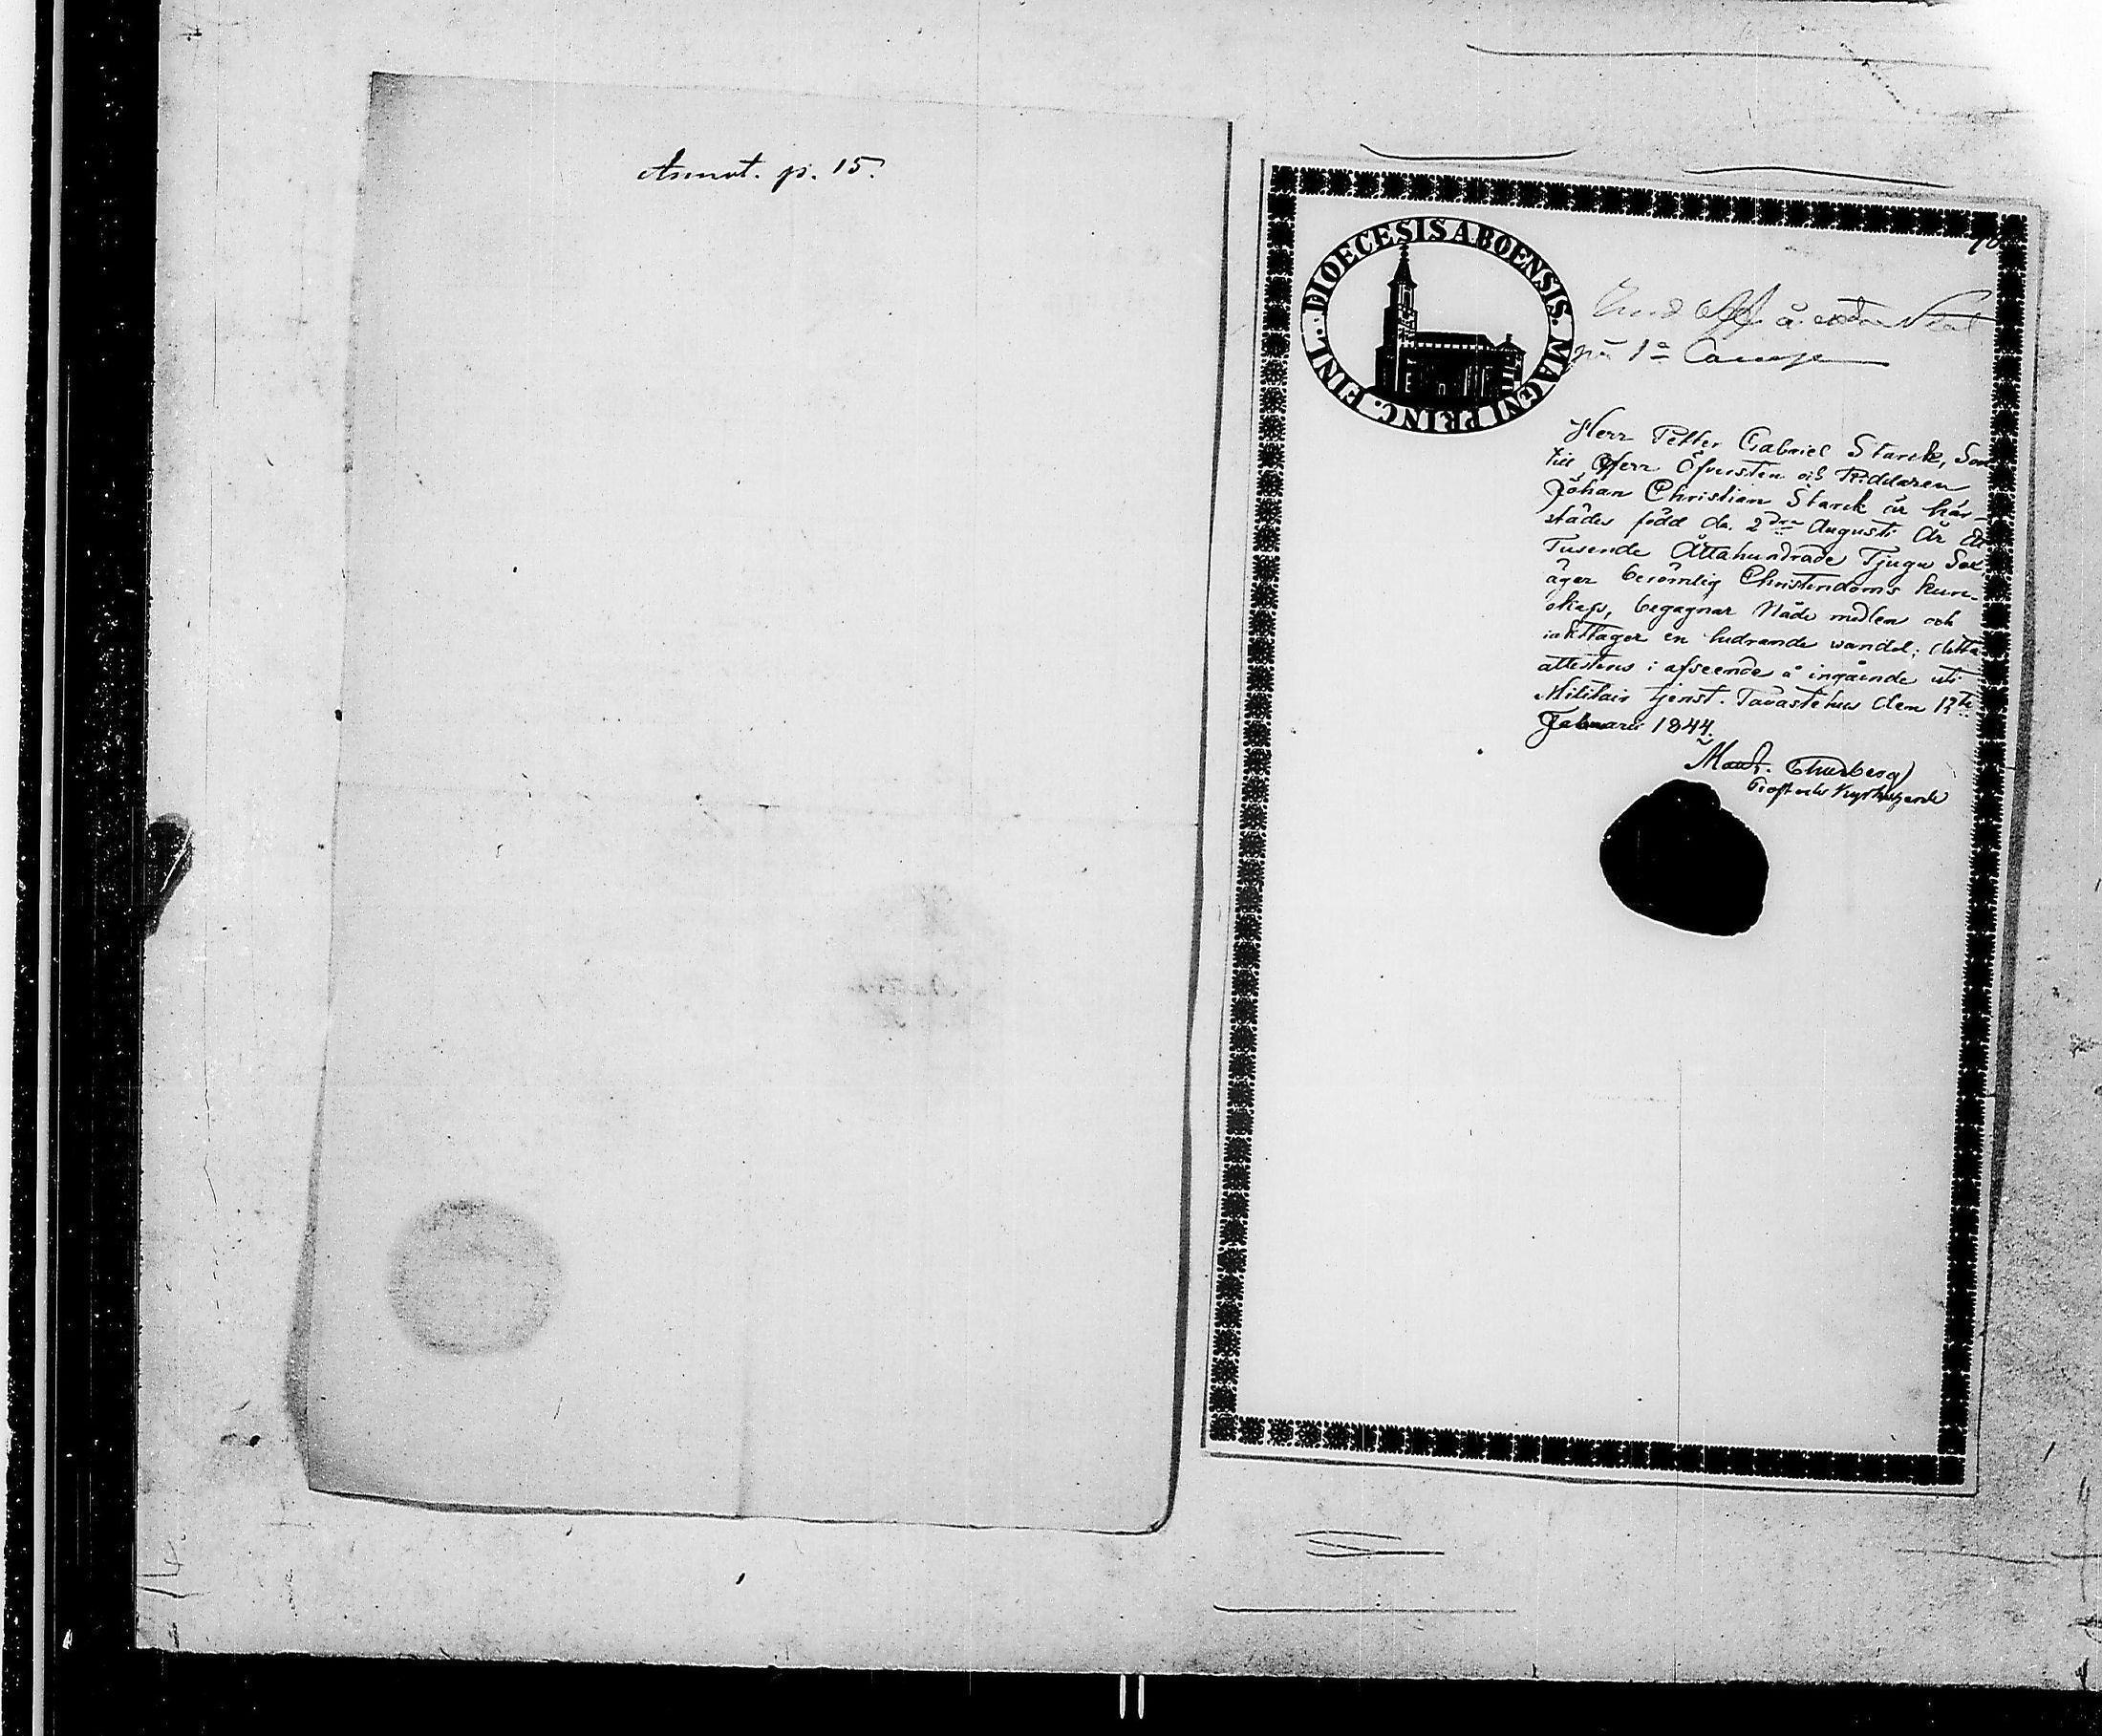 Annot. p. 15.
DIOECESIS ABOENSIS. MAGNI PRINC. FINL.
på 1a Comp
Herr Petter Gabriel Starck, Son
till Herr Öfversten och Riddaren
Johan Christian Starck är här-
städes född de. 2dra Augusti År Ett
Tusende Åttahundrade Tjugu Sex
äger berömlig Christendoms kun-
skap, begagnar Nåde medlen och
iakttager en hedrande vandel; detta
attesteras i afseende å ingående uti
Militair tjenst. Tavastehus den 12te
Februarii 1844.
Thurberg
Prost och Kyrkoherde